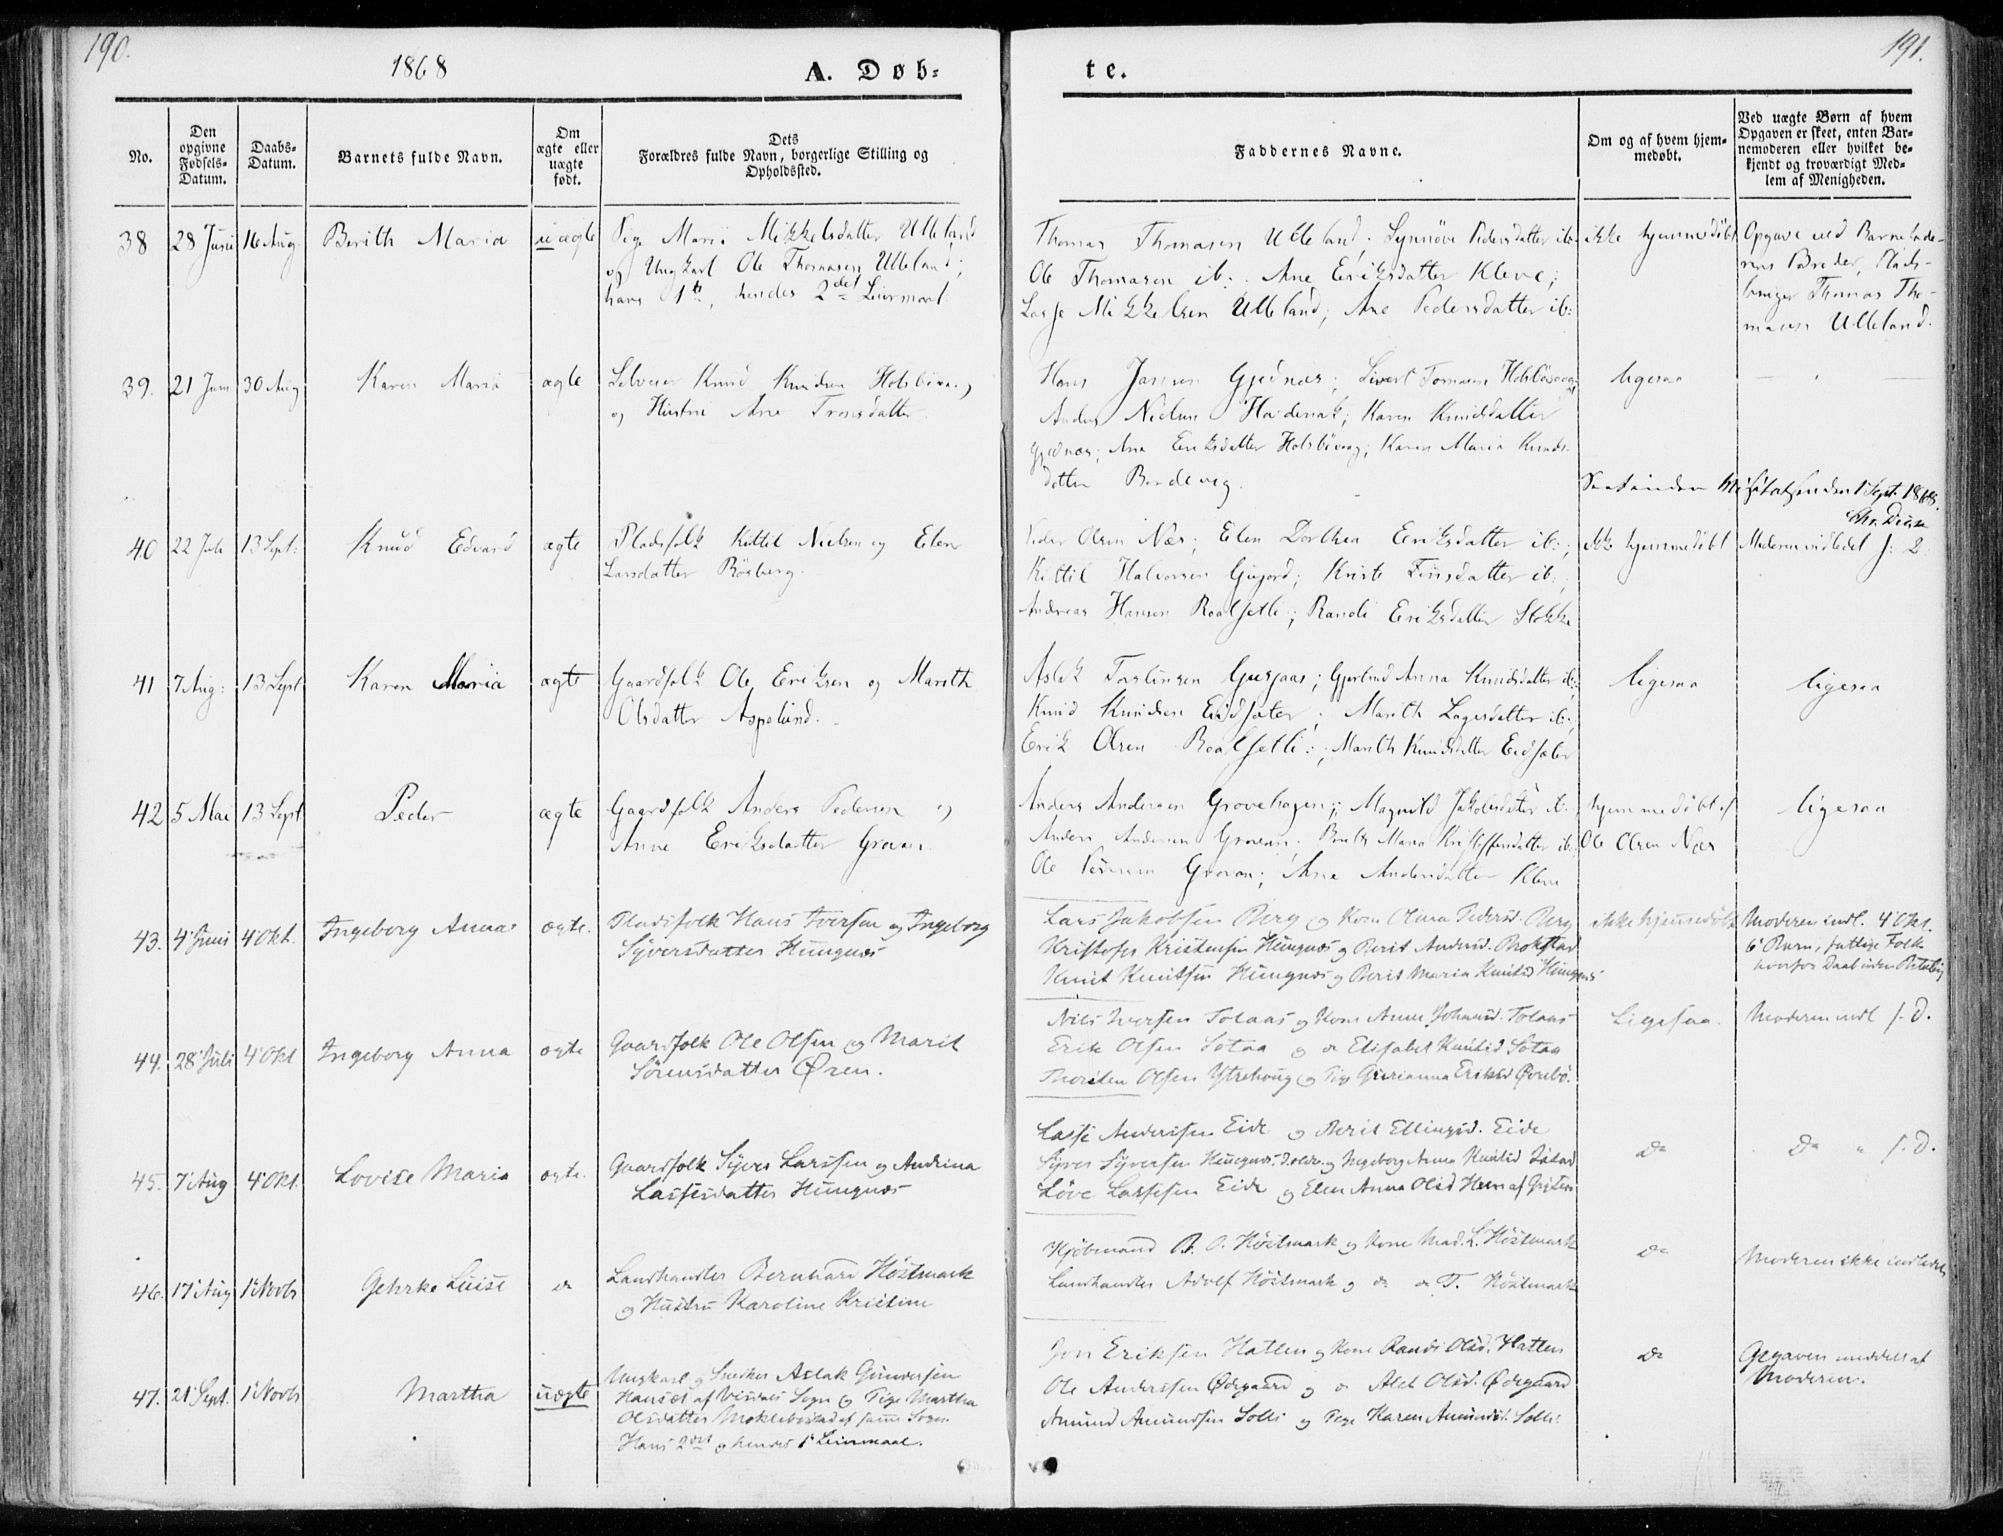 190.
1868
A. Døb-
te.
191.
No.
Den opgivne Fødsels-Datum.
Daabs-Datum.
Barnets fulde Navn.
Om ægte eller uægte født.
Dets Forældres fulde Navn, borgerlige Stilling og Opholdssted.
Faddernes Navne.
Om og af hvem hjem-medøbt.
Ved uægte Børn af hvem Opgaven er skeet, enten Bar-nemoderen eller hvilket be-kjendt og troværdigt Med-lem af Menigheden.
38 28 Juni 16 Aug Berith Maria uægte
Pige Maria Mikkelsdatter Ulleland
og Ungkarl Ole Thomasen Ulleland;
hans 1te, hendes 2det Leiermaal
Thomas Thomasen Ulleland; Synnöve Pedersdatter ib:
Ole Thomasen ib:. Ane Eriksdatter Kleve;
Lasse Mikkelsen Ulleland; Ane Pedersdatter ib:
ikke hjemmedöbt
Opgave ved Barnefade-
rens Broder, Plads-
bruger Thomas Tho-
masen Ulleland.
39. 21 Juni 30 Aug Karen Maria ægte
Selveier Knud Knudsen Holsbövaag
og Hustru Ane Tronsdatter
Hans Jansen Gjednæs; Sivert Tomasen Holsbövaag
Anders Nielsen Hoidenak; Karen Knudsdatter
Gjednæs; Ane Eriksdatter Holsbövaag; Karen Maria Knuds-
datter Bordeveg.
ligesaa
Visitatsen den 1 Sept. 1868.
40 22 Juli 13 Sept: Knud Edvard ægte
Pladsfolk Kittil Nielsen og Elen
Larsdatter Röeberg.
Peder Olsen Nær; Elen Dorthea Eriksdatter ib:;
Kittil Halvorsen Gujord; Kristi Finsdatter ib:
Andreas Hansen Roalsetli; Randi Eriksdatter Stokke
ikke hjemmedöbt
Moderen indledet s: D
41 7 Aug: 13 Sept Karen Maria ægte
Gaardfolk Ole Eriksen og Marith
Olsdatter Aspelund.
Aslak Torkinsen Gusjaas; Gjertrud Anna Knudsdatter ib:
Knud Knudsen Eidsæter; Marith Lagesdatter ib:
Erik Olsen Roalsetli:; Marith Knudsdatter Eidsæter
ligesaa
ligesaa
42 5 Mai 13 Sept Peder ægte
Gaardfolk Anders Pedersen og
Anne Eriksdatter Grovan.
Anders Andersen Grovehagen; Magnild Jakobsdatter ib:
Anders Andersen Grovan. Berith Maria Kristoffersdatter ib:
Ole Pedersen Grovan; Ane Andersdatter Kleve
hjemmedöbt af
Ole Olsen Nær
ligesaa
43. 4' Juni 4' Okt. Ingeborg Anna ægte.
Pladsfolk Hans Iversen og Ingeborg
Syversdatter Hungnæs
Lars Jakobsen Berg og Kone Olina Pedersd. Berg
Kristofer Kristensen Hungnæs og Berit Andersd. Brokstad
Knut Knutsen Hungnæs og Berit Maria Knutsd Hungnæs
ikke hjemmedöbt
Moderen indl. 4' Okt.
6' Barn, fattige Folk
hvorfor Daab uden Betaling
44. 28' Juli 4' Okt Ingeborg Anna ægte
Gaardfolk Ole Olsen og Marit
Sörensdatter Øren.
Nils Iversen Tolaas og Kone Anne Johansd. Tolaas
Erik Olsen Sotaa og do Elisabet Knutsd Sotaa
Thorsten Olsen Ytrehoug og Pige Gurianna Eriksd Øvrebö.
Ligesaa.
Moderen indl s. D.
45. 7' Aug 4' Okt. Lovise Maria ægte.
Gaardfolk Syver Larssen og Andrina
Lassesdatter Hungnæs
Lasse Anderssen Eide og Berit Ellingsd. Eide
Syver Syversen Hungnæs og Ingeborg Anna Knutsd
Löve Lassesen Eide og Elen Anna Olsd Hem af Grytten
Do
Do " s. D.
46. 17' Aug 1' Novbr Gehrke Luise do
Landhandler Bernhard Höstmark
og Hustru Karoline Kristine
Kjöbmand B. O. Höstmark og Kone Mad. L. Höstmark
Landhandler Adolf Höstmark og do do T. Höstmark
Do
Moderen ikke indledet
47. 21' Sept. 1' Novbr Martha uægte
Ungkarl og Snedker Aslak Gundersen
Hanset af Visdals Sogn og Pige Martha
Olsdatter Moklebostad af samme Sogn
Hans 2det og hendes 1' Leiermaal.
Jon Eriksen Hatlen og Kone Randi Olsd. Hatlen
Ole Anderssen Ødegaard og do Alet Olsd. Ødegaard
Amund Amundsen Solli og Pige Karen Amundsd. Solli
Do
Opgaven meddelt af
Moderen.